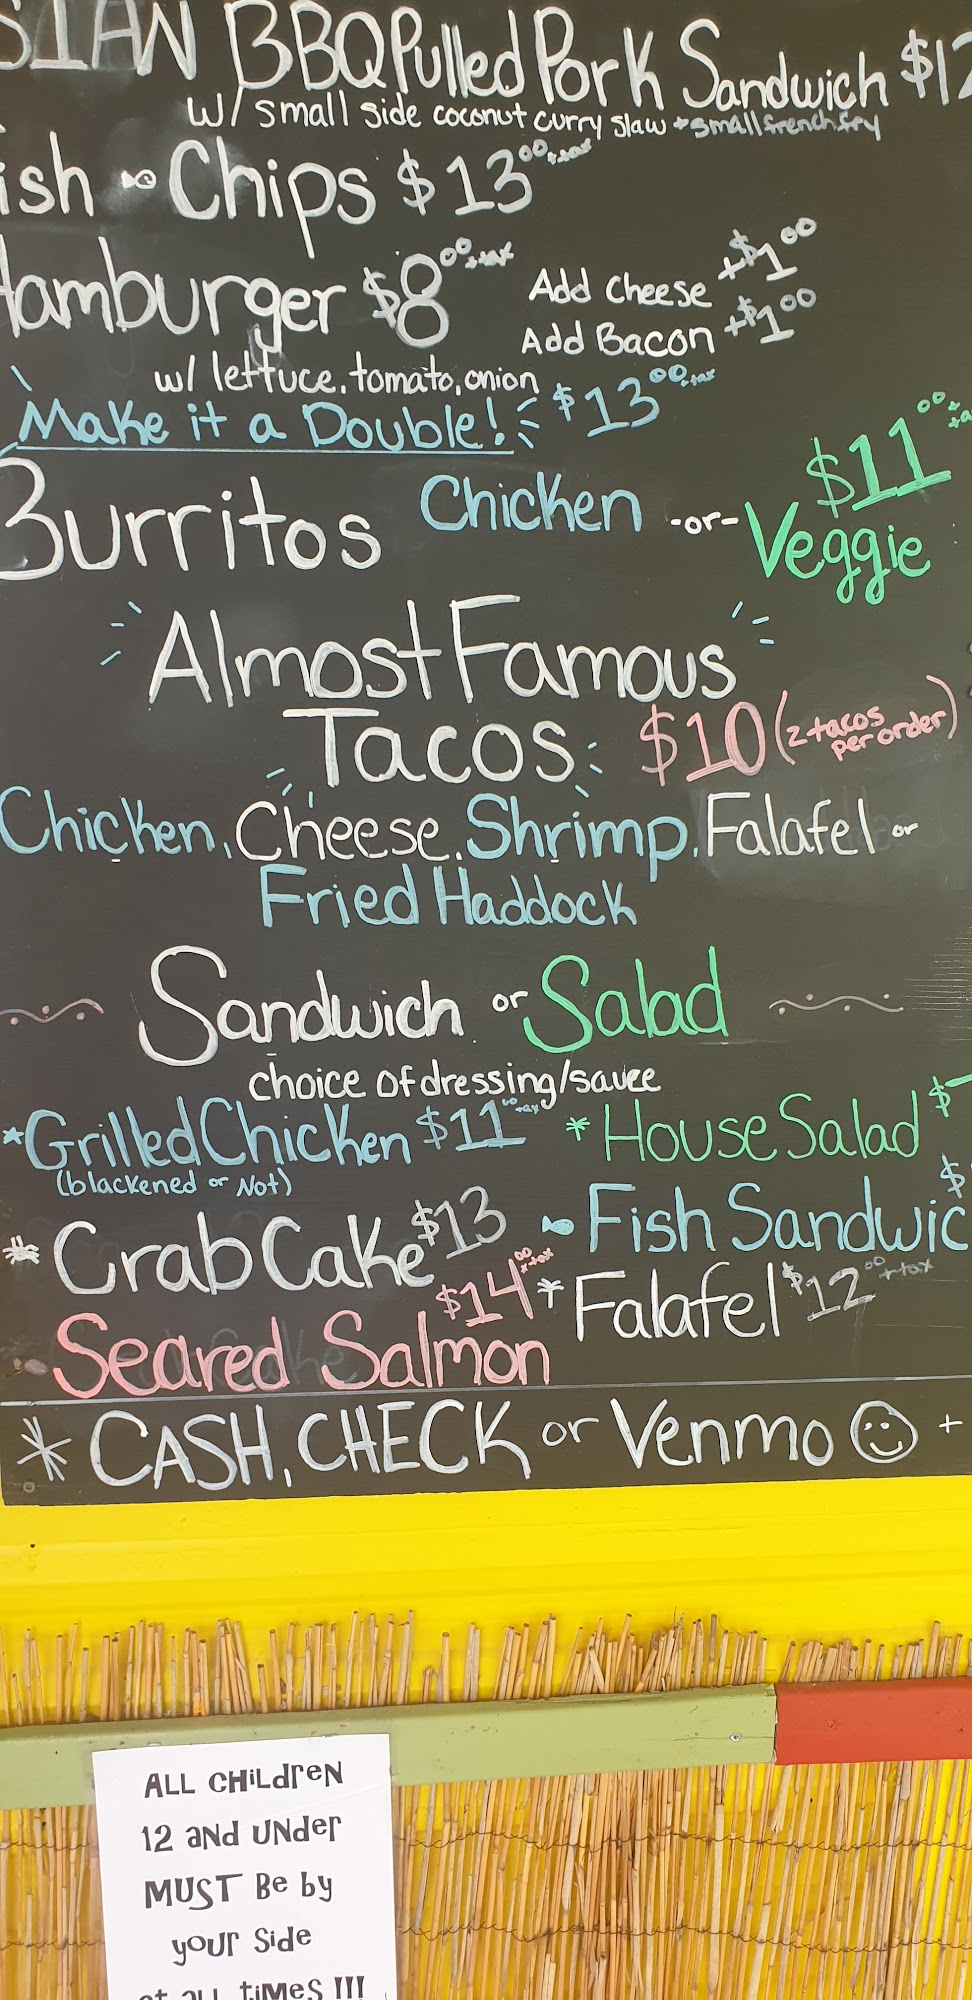 SIAN BBQ Pulled Pork Sandwich $12
w/ small side coconut curry slaw + small french fry
ish Chips $13.00+tax
Hamburger $8.00+tax Add Cheese +$1.00
Add Bacon +$1.00
w/ lettuce, tomato, onion
Make it a Double! $13.00+tax
Burritos Chicken -or- Veggie $11.00
Almost Famous
Tacos $10 (2 tacos per order)
Chicken, Cheese, Shrimp, Falafel or
Fried Haddock
Sandwich or Salad
choice of dressing/sauce
*Grilled Chicken $11.00+tax * House Salad $
(blackened or Not)
Crab Cake $13 Fish Sandwic $
Seared Salmon $14.00+tax * Falafel $12.00+tax
* CASH, CHECK or Venmo +
ALL CHildreN
12 aNd UNder
MUST Be by
your Side
at all times !!!